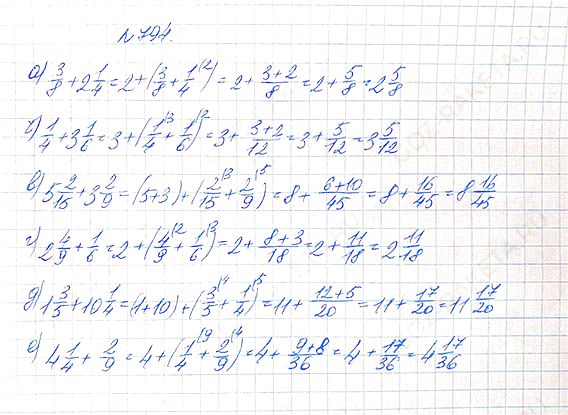 №794.
а) 3/8 + 2 1/4 = 2 + (3/8 + 1/4^(2) = 2 + (3+2)/8 = 2 + 5/8 = 2 5/8
б) 1/4^(3 + 3 1/6 = 3 + (1/4^(3 + 1/6^(2) = 3 + (3+2)/12 = 3 + 5/12 = 3 5/12
в) 5 2/15 + 3 2/9 = (5+3) + (2/15^(3 + 2/9^(5) = 8 + (6+10)/45 = 8 + 16/45 = 8 16/45
г) 2 4/9 + 1/6 = 2 + (4/9^(2 + 1/6^(3) = 2 + (8+3)/18 = 2 + 11/18 = 2 11/18
д) 1 3/5 + 10 1/4 = (1+10) + (3/5^(4 + 1/4^(5) = 11 + (12+5)/20 = 11 + 17/20 = 11 17/20
е) 4 1/4 + 2/9 = 4 + (1/4^(9 + 2/9^(4) = 4 + (9+8)/36 = 4 + 17/36 = 4 17/36